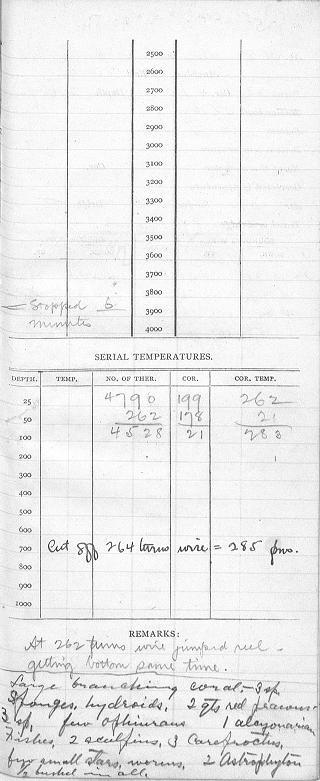 2500
2600
2700
2800
2900
3000
3100
3200
3300
3400
3500
3600
3700
3800
Stopped 6
3900
minutes
4000
SERIAL TEMPERATURES.
DEPTH. TEMP. NO. OF THER. COR. COR. TEMP.
25 4790 199 262
50 262 178 21
100 4528 21 283
200
300
400
500
600
700 Cut off 264 turns wire = 285 fms.
800
900
1000
REMARKS:
At 262 turns wire jumped reel -
getting bottom same time.
Large branching coral, - 3 sp
Sponges, hydroids. 2 qts red prawns -
3 sp, few ophiurans 1 alcyonarian
Fishes, 2 sculpins, 3 Careproctus,
few small stars, worms, 2 Astrophyton
1/2 bushel in all.